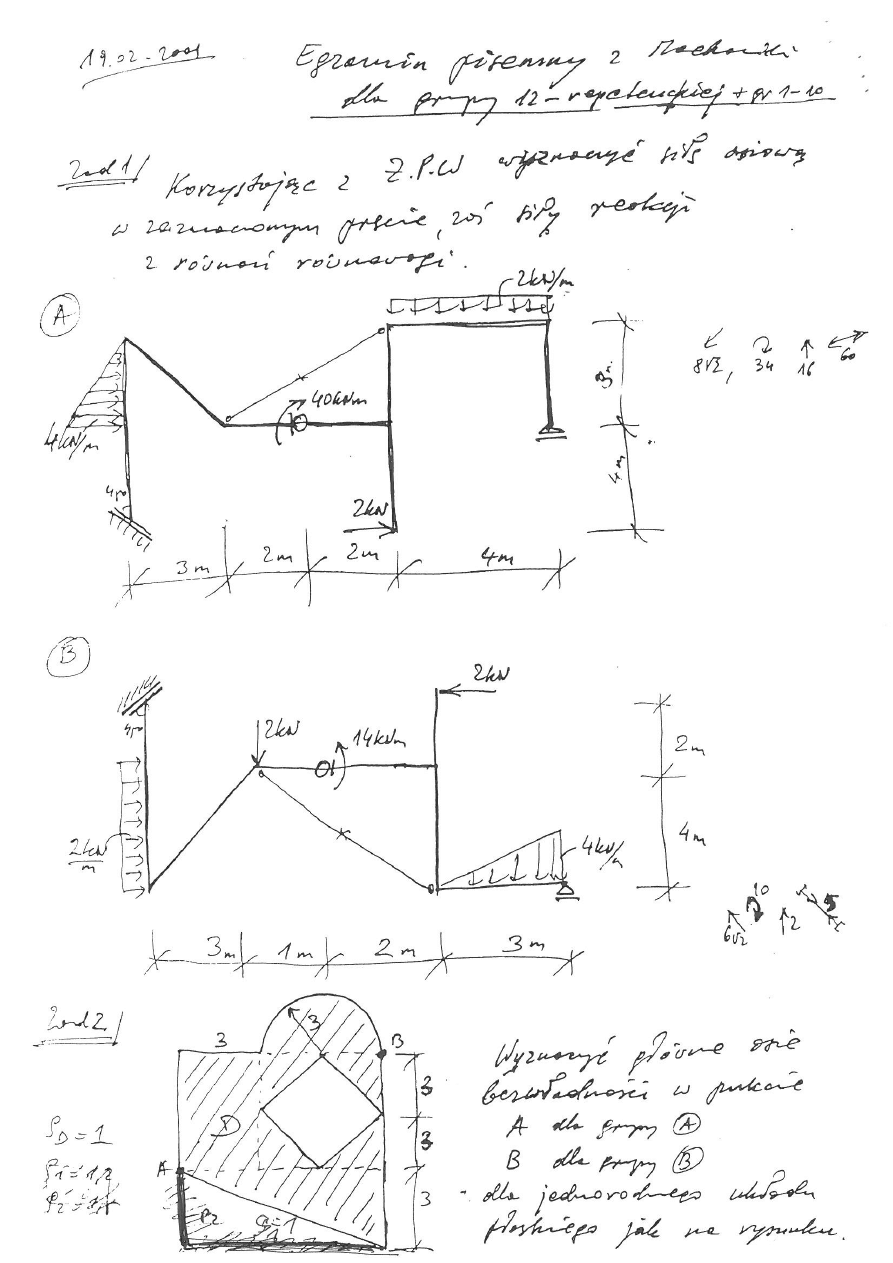 19.02.2001
Egzamin pisemny z Mechaniki
dla grupy 12-repetenckiej + gr 1-10
Zad 1/
Korzystając z Z.P.W wyznaczyć siłę osiową
w zaznaczonym pręcie, zaś siły reakcji
z równań równowagi.
A
2kN/m
8√2, 34 16 60
40kNm
3m
4kN/m
4m
45°
2kN
3m 2m 2m 4m
B
2kN
45°
2kN 14kNm
2m
2kN/m
4kN/m
4m
10
6√2 2 5
3m 1m 2m 3m
Zad 2/
3 3 B
3
D 3
A
3
ρD = 1
ρ1 = 1,2
ρ2
ρ1 = 1
Wyznaczyć główne osie
bezwładności w punkcie
A dla grupy A
B dla grupy B
dla jednorodnego układu
płaskiego jak na rysunku.